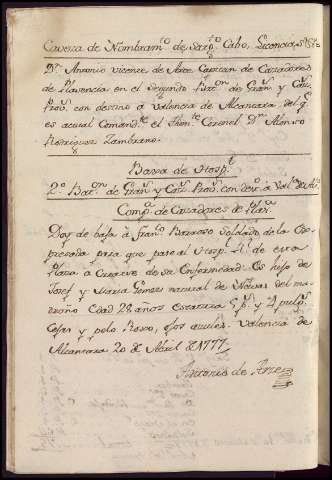 Cavera de Nombram.to de Sarg.to Cabo, Licencia,
Dn. Antonio Vicente de Arce Capitan de Cazadores
de Plasencia en el Segundo Bat.on de Gran.s y Caz.s
Prov.s con destino a Valencia de Alcantara del q.e
es actual Comand.te el Then.te Coronel Dn. Alonso
Rodriguez Zambrano.
Baxa de Hosp.l
2.o Bat.on de Gran.s y Caz.s Prov.s con des.o a Val.a de Al.a
Comp.a de Cazadores de Plas.a
Doy de baja a Fran.co Barroso Soldado de la Es-
presada para que pase al Hosp.l R.l de esta
Plaza a curarse de su Enfermedad: Es hijo de
Josef y Maria Gomez natural de Navas del ma
droño Edad 28 años estatura 5 p.s y 4 pulg.s
Cejas y pelo Roxo, ojos azules. Valencia de
Alcantara 20 de Abril de 1777
Antonio de Arce